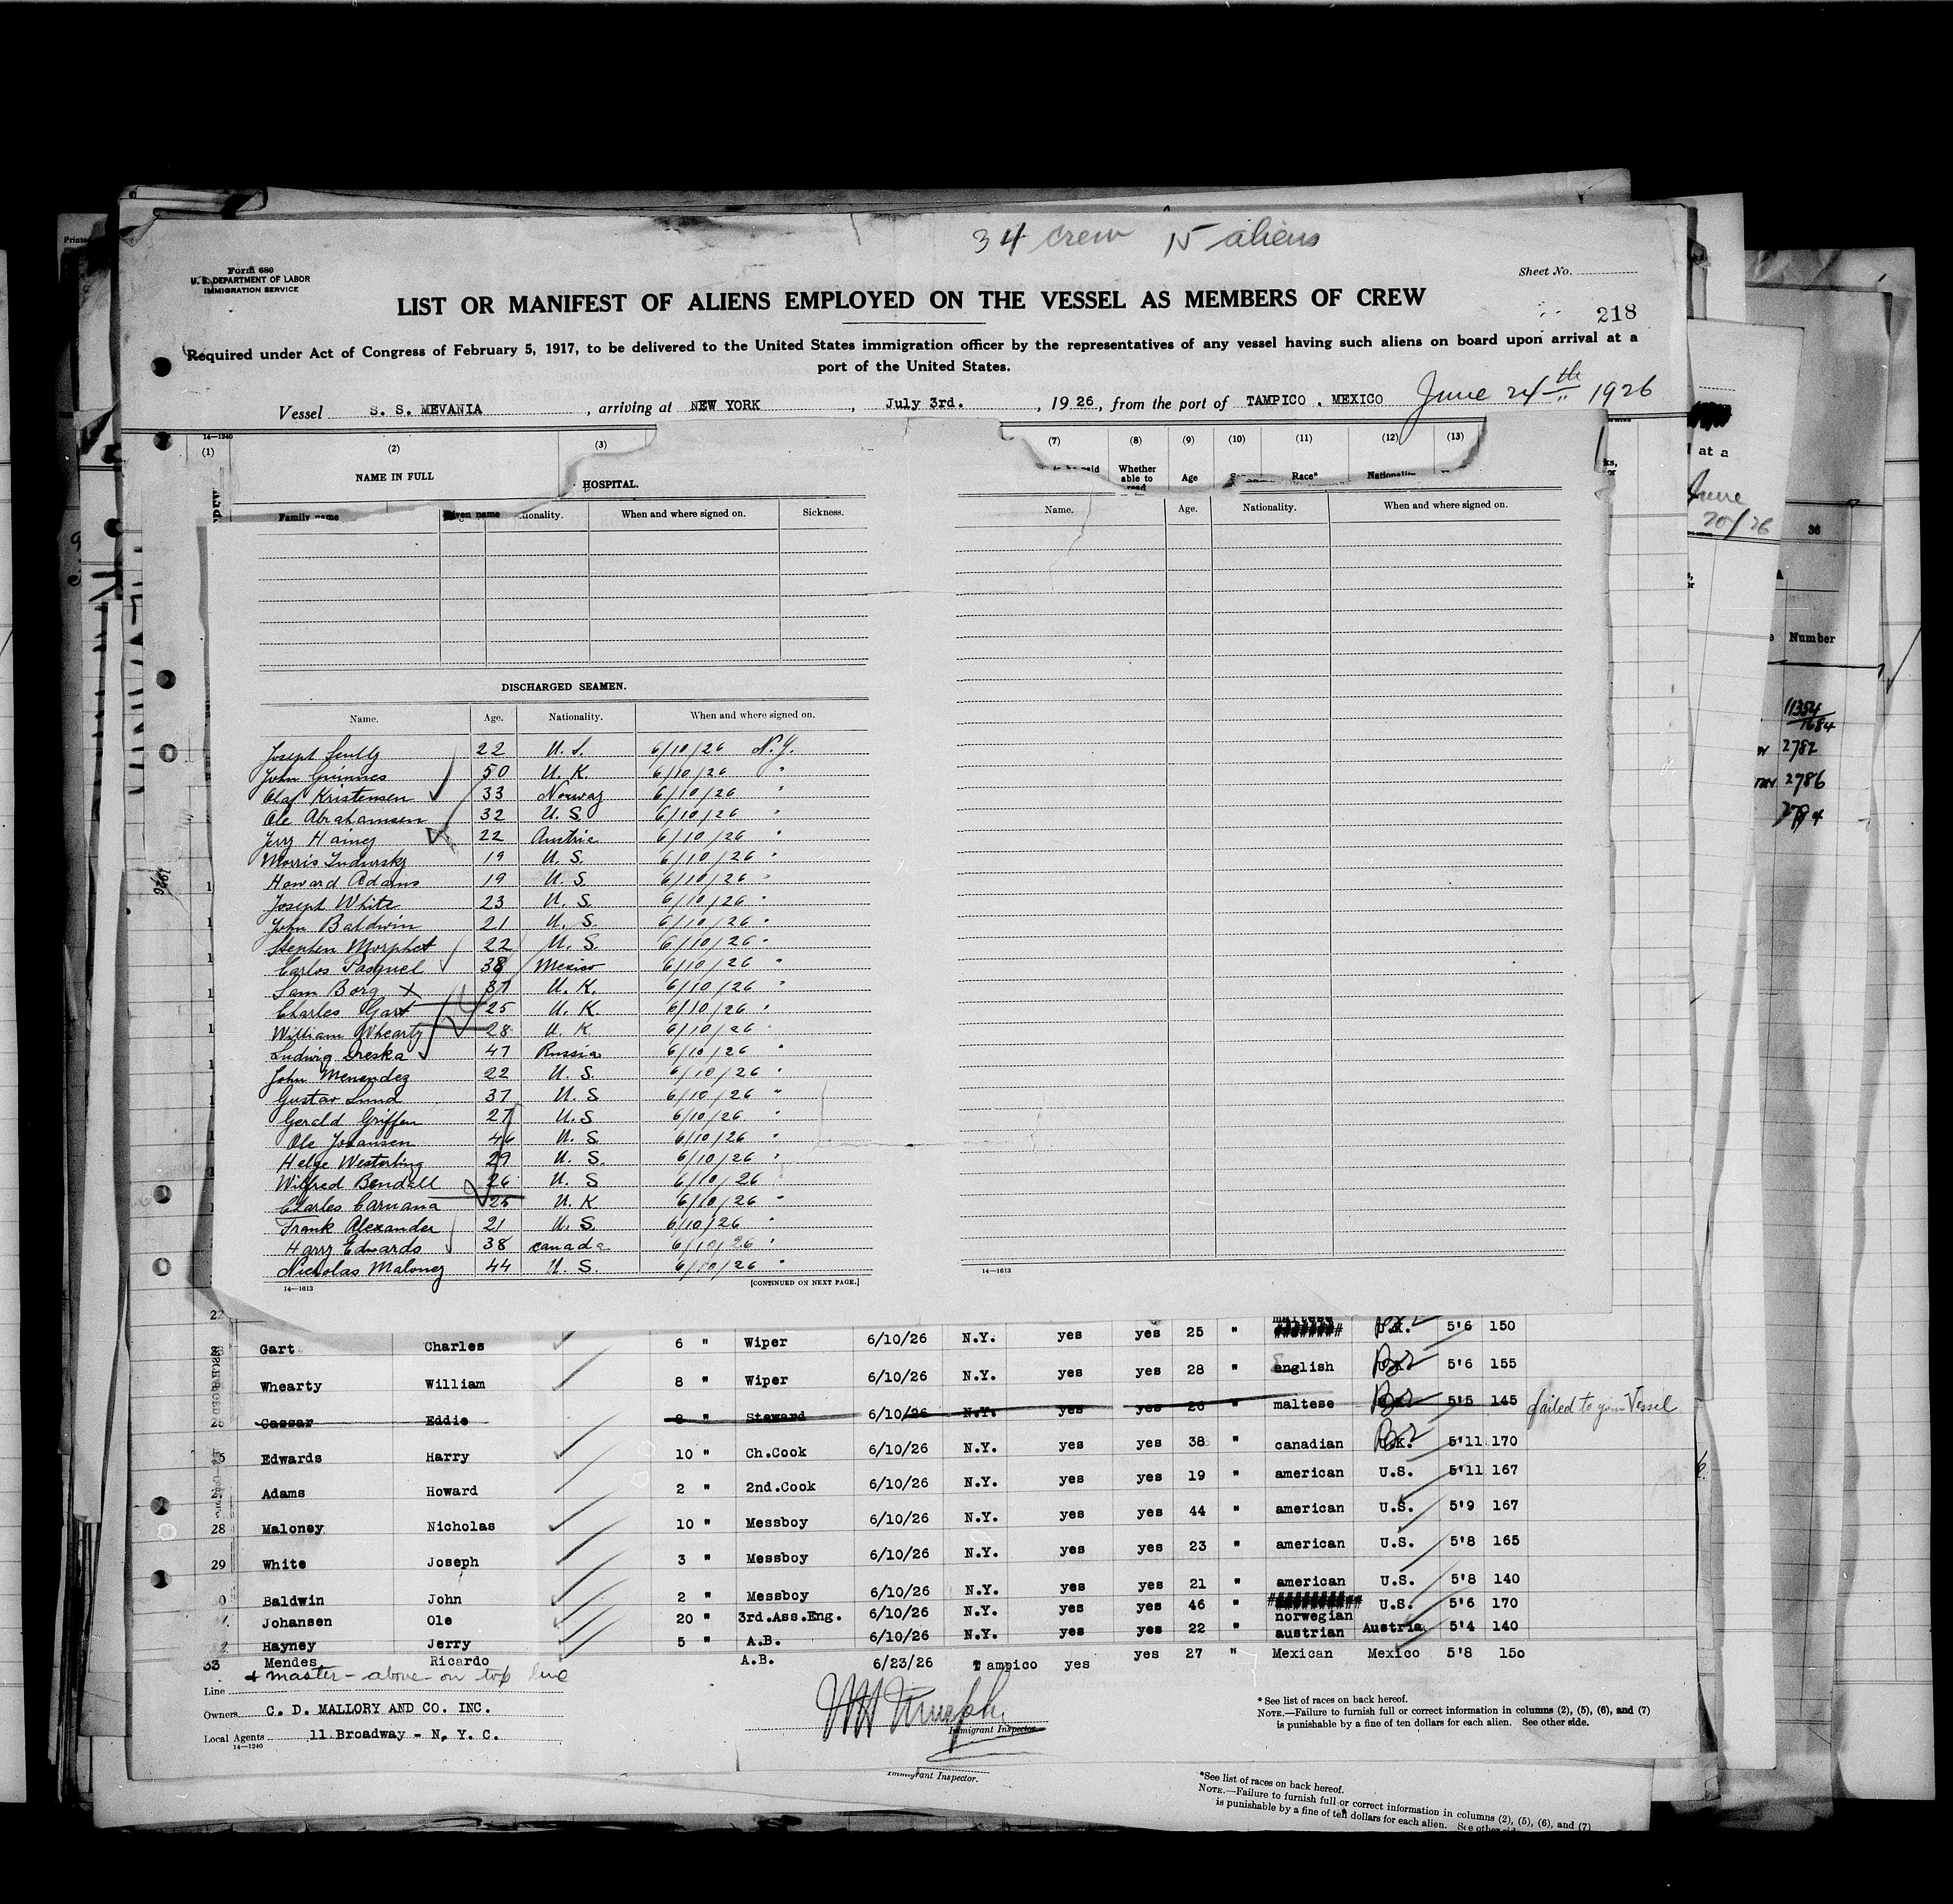 34 crew 15 aliens
Form 680
U. S. DEPARTMENT OF LABOR
IMMIGRATION SERVICE
Sheet No.
LIST OR MANIFEST OF ALIENS EMPLOYED ON THE VESSEL AS MEMBERS OF CREW
218
Required under Act of Congress of February 5, 1917, to be delivered to the United States immigration officer by the representatives of any vessel having such aliens on board upon arrival at a
port of the United States.
Vessel S. S. MEVANIA, arriving at NEW YORK, July 3rd., 1926, from the port of TAMPICO . MEXICO June 24th 1926
14—1240
(1) (2) (3) (7) (8) (9) (10) (11) (12) (13)
NAME IN FULL
Whether able to read Age Race* Nationality
HOSPITAL.
Family name Given name tionality. When and where signed on. Sickness.
Name. Age. Nationality. When and where signed on.
DISCHARGED SEAMEN.
Name. Age. Nationality. When and where signed on.
Joseph Scully 22 U. S. 6/10/26 N.Y.
John Guinnes 50 U. K. 6/10/26 "
Olaf Kristensen 33 Norway 6/10/26 "
Ole Abrahamsen 32 U. S. 6/10/26 "
Jerry Hainey 22 Austria 6/10/26 "
Morris 19 U. S. 6/10/26 "
Howard Adams 19 U. S. 6/10/26 "
Joseph White 23 U. S. 6/10/26 "
John Baldwin 21 U. S. 6/10/26 "
Stephen Morphet 22 U. S. 6/10/26 "
Carlos Pasquel 38 Mexico 6/10/26 "
Sam Borg x 37 U. K. 6/10/26 "
Charles Gart 25 U. K. 6/10/26 "
William Whearty 28 U. K. 6/10/26 "
Ludwig Dreska 47 Russia 6/10/26 "
John Menendez 22 U. S. 6/10/26 "
Gustav Lund 37 U. S 6/10/26 "
Gerald Griffen 27 U. S 6/10/26 "
Ole Johansen 46 U. S. 6/10/26 "
Helge Westerling 29 U. S. 6/10/26 "
Wilfred Bendall 26 U. S 6/10/26
Charles Carnana 25 U. K 6/10/26 "
Frank Alexander 21 U. S. 6/10/26 "
Harry Edwards 38 canada 6/10/26 "
Nicholas Maloney 44 U. S. 6/10/26 "
14—1613 [CONTINUED ON NEXT PAGE.] 14—1613
22
Gart Charles 6 " Wiper 6/10/26 N.Y. yes yes 25 " maltese U.K. 5'6 150
Whearty William 8 " Wiper 6/10/26 N.Y. yes yes 28 " english 5'6 155
Cassar Eddie 8 " Steward 6/10/26 N.Y. yes yes 26 " maltese 5'5 145 failed to join Vessel
Edwards Harry 10 " Ch.Cook 6/10/26 N.Y. yes yes 38 " canadian U.K. 5'11 170
Adams Howard 2 " 2nd.Cook 6/10/26 N.Y. yes yes 19 " american U.S. 5'11 167
28 Maloney Nicholas 10 " Messboy 6/10/26 N.Y. yes yes 44 " american U.S. 5'9 167
29 White Joseph 3 " Messboy 6/10/26 N.Y. yes yes 23 " american U.S. 5'8 165
Baldwin John 2 " Messboy 6/10/26 N.Y. yes yes 21 " american U.S. 5'8 140
Johansen Ole 20 " 3rd.Ass.Eng. 6/10/26 N.Y. yes yes 46 " norwegian U.S. 5'6 170
Hayney Jerry 5 " A.B. 6/10/26 N.Y. yes yes 22 " austrian Austria 5'4 140
33 Mendes Ricardo A.B. 6/23/26 Tampico yes yes 27 " Mexican Mexico 5'8 150
+ master - above - on top line
Line
Owners C. D. MALLORY AND CO. INC.
Local Agents 11 Broadway - N. Y. C.
14—1240
Immigrant Inspector.
* See list of races on back hereof.
NOTE.—Failure to furnish full or correct information in columns (2), (5), (6), and (7)
is punishable by a fine of ten dollars for each alien. See other side.
Immigrant Inspector.
*See list of races on back hereof.
NOTE.—Failure to furnish full or correct information in columns (2), (5), (6), and (7)
is punishable by a fine of ten dollars for each alien. See other side.
at a
June
20/26
36
Number
11354
1684
2782
2786